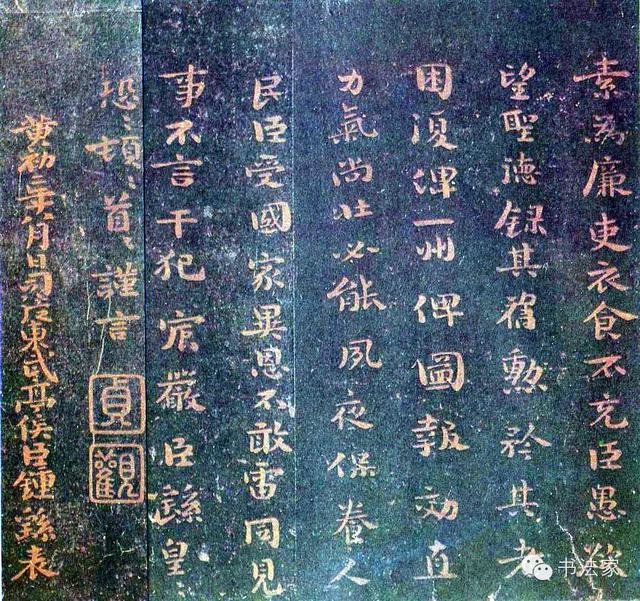 素為廉吏衣食不充臣愚欲
望聖德錄其舊勳矜其老
困復俾一州俾圖報効直
力氣尚壯必能夙夜保養人
民臣受國家異恩不敢雷同見
事不言干犯宸嚴臣繇皇〻
恐〻頓〻首〻謹言
貞
觀
黃初二年八月日司徒東武亭侯臣鍾繇表
书法家